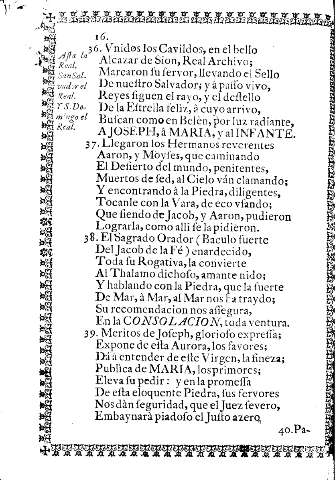 16.
36. Vnidos los Cavildos, en el bello
Alcazar de Sion, Real Archivo;
Marcaron su fervor, llevando el Sello
De nuestro Salvador; y à passo vivo,
Reyes siguen el rayo, y el destello
De la Estrella feliz, à cuyo arrivo,
Buscan como en Belèn, por luz radiante,
A JOSEPH, à MARIA, y al INFANTE.
37. Llegaron los Hermanos reverentes
Aaron, y Moyses, que caminando
El Desierto del mundo, penitentes,
Muertos de sed, al Cielo vàn clamando;
Y encontrando à la Piedra, diligentes,
Tocanle con la Vara, de eco viando;
Que siendo de Jacob, y Aaron, pudieron
Lograrla, como alli se la pidieron.
38. El Sagrado Orador (Baculo fuerte
Del Jacob de la Fè) enardecido,
Toda su Rogativa, la convierte
Al Thalamo dichoso, amante nido;
Y hablando con la Piedra, que la suerte
De Mar, à Mar, al Mar nos ha traydo;
Su recomendacion nos assegura,
En la CONSOLACION, toda ventura.
39. Meritos de Joseph, glorioso expressa;
Expone de esta Aurora, los favores;
Dà à entender de este Virgen, la fineza;
Publica de MARIA, los primores;
Eleva su pedir: y en la promessa
De esta eloquente Piedra, sus fervores
Nos dàn seguridad, que el Juez severo,
Embaynarà piadoso el Justo azero,
40. Pa-
Real.
Real.
Y S. Do-
mingo el
Real.